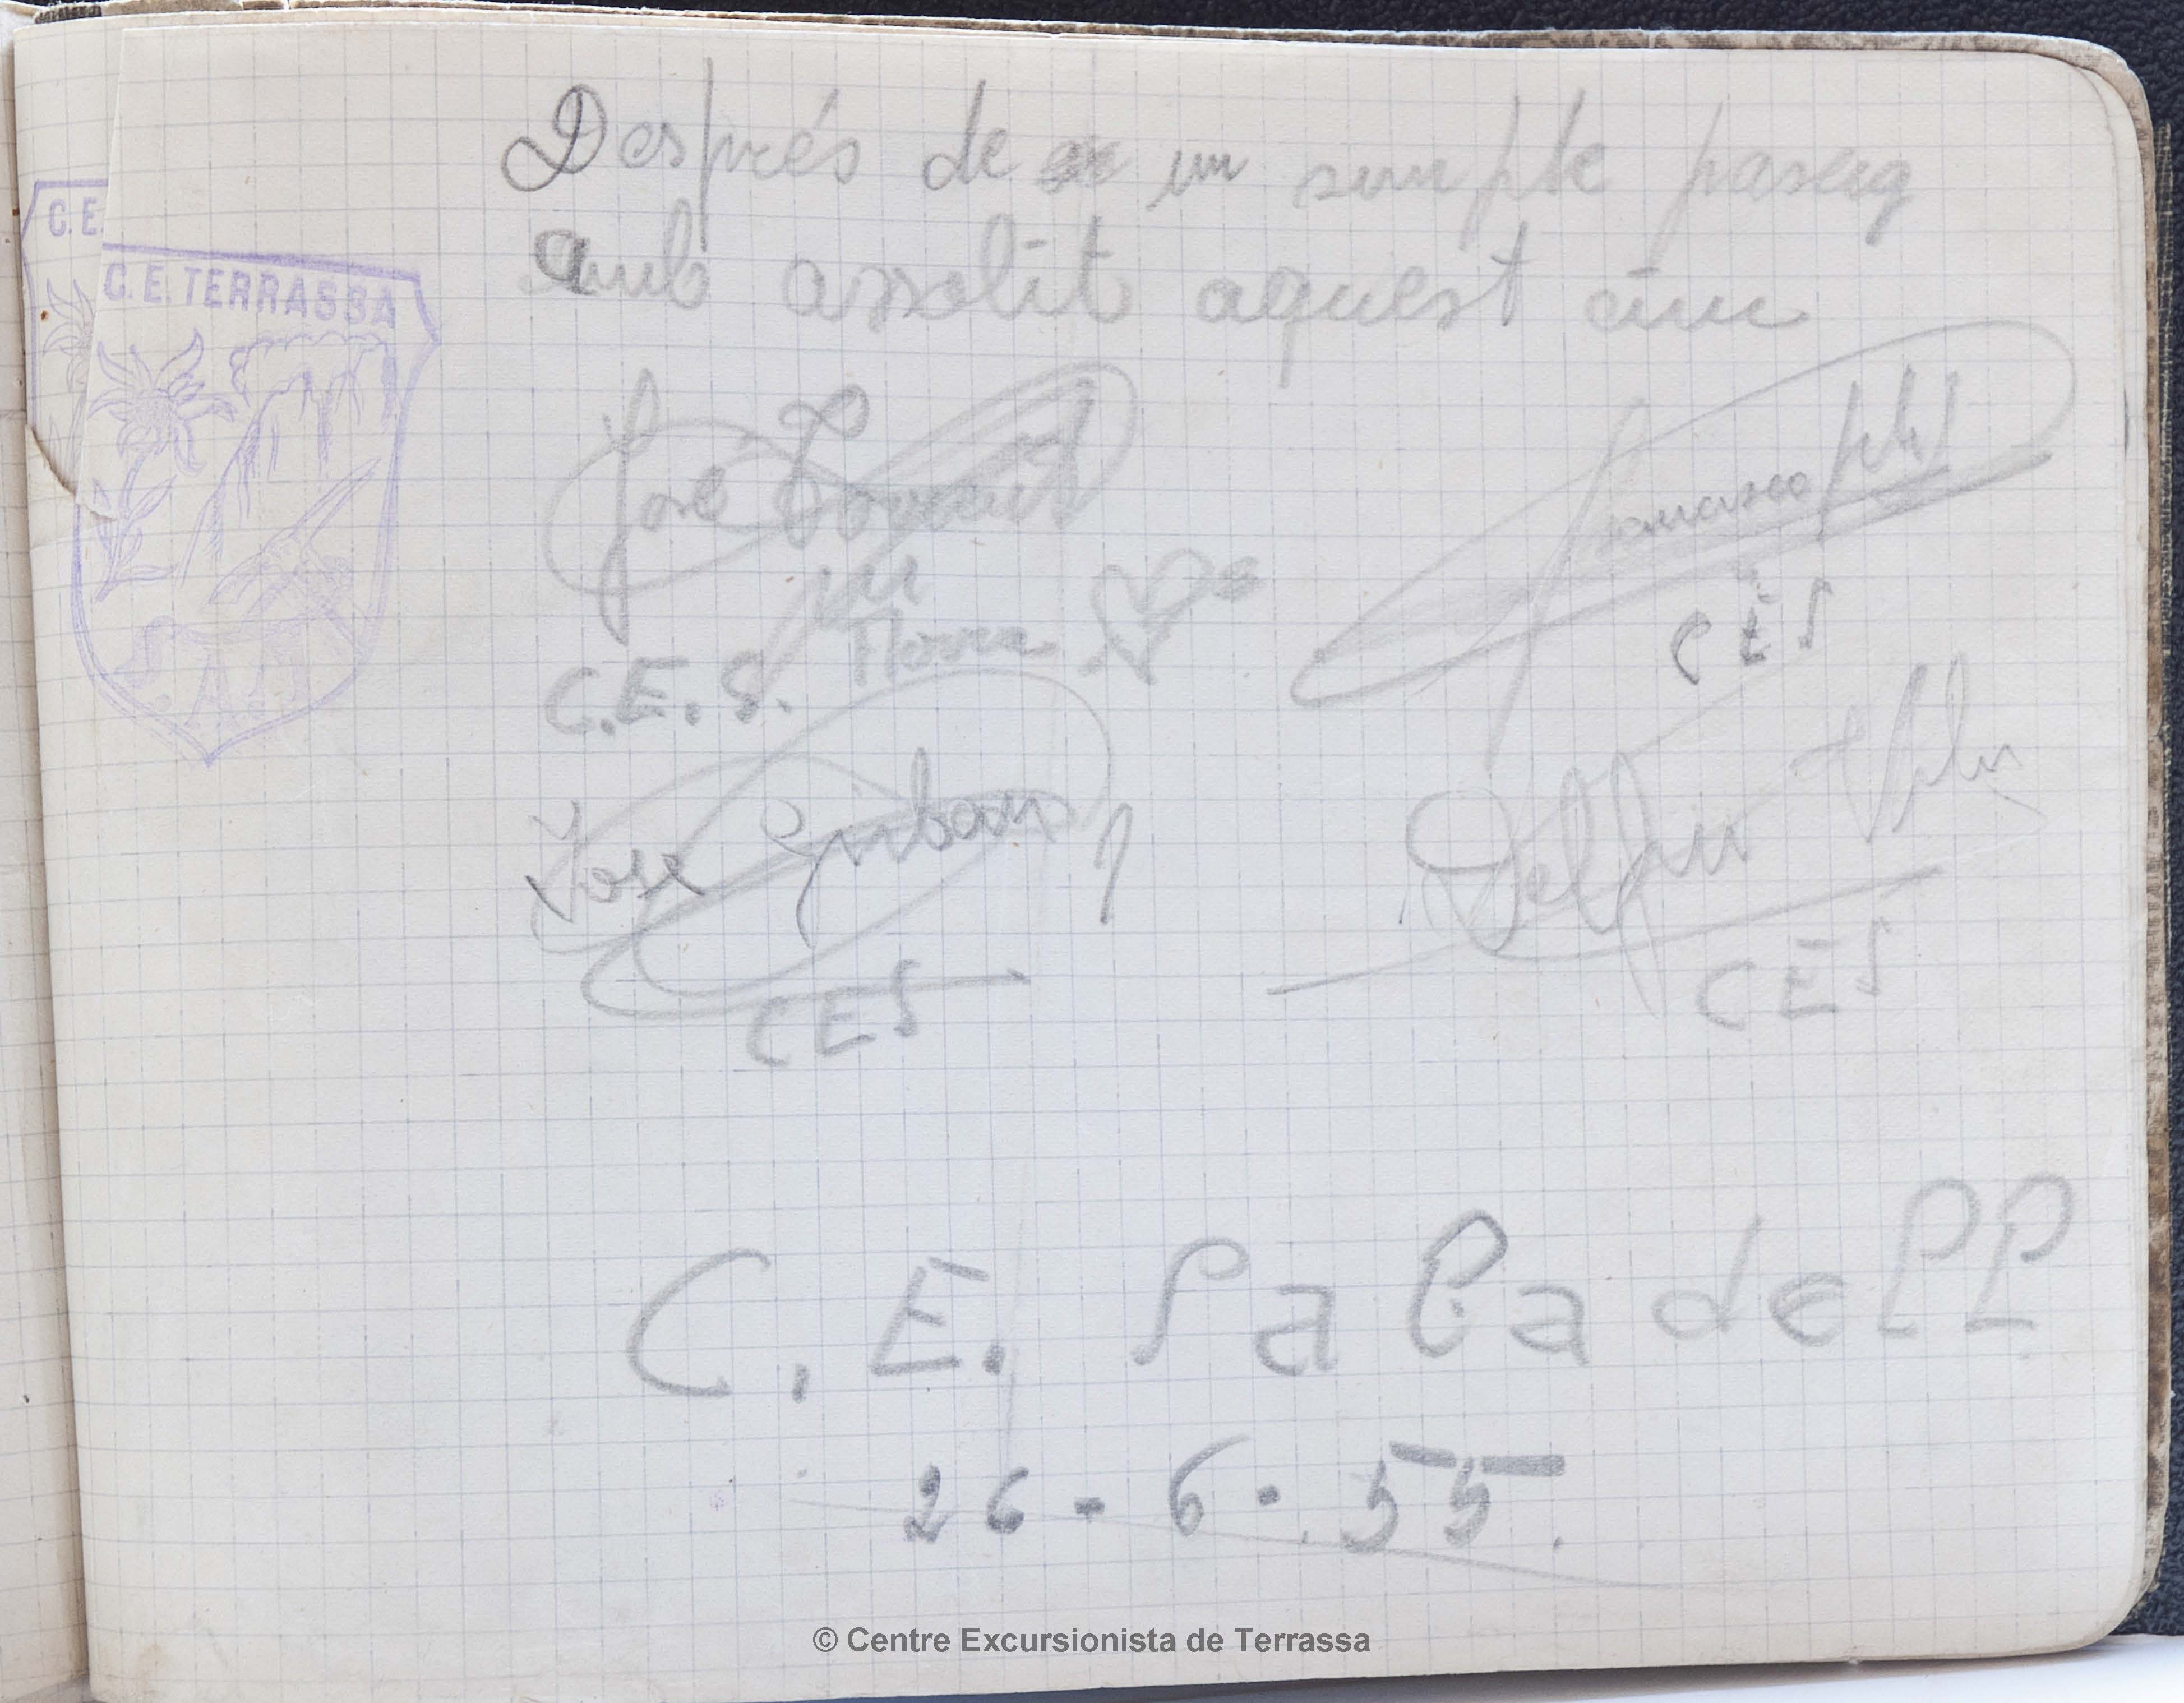 C.E.
C.E. TERRASSA
Després de un simple paseig
amb assolit aquest cim
José
C.E.S.
Francisco
CES
José
CES
Delfin
CES
C.E. Sabadell
26-6-55.
© Centre Excursionista de Terrassa